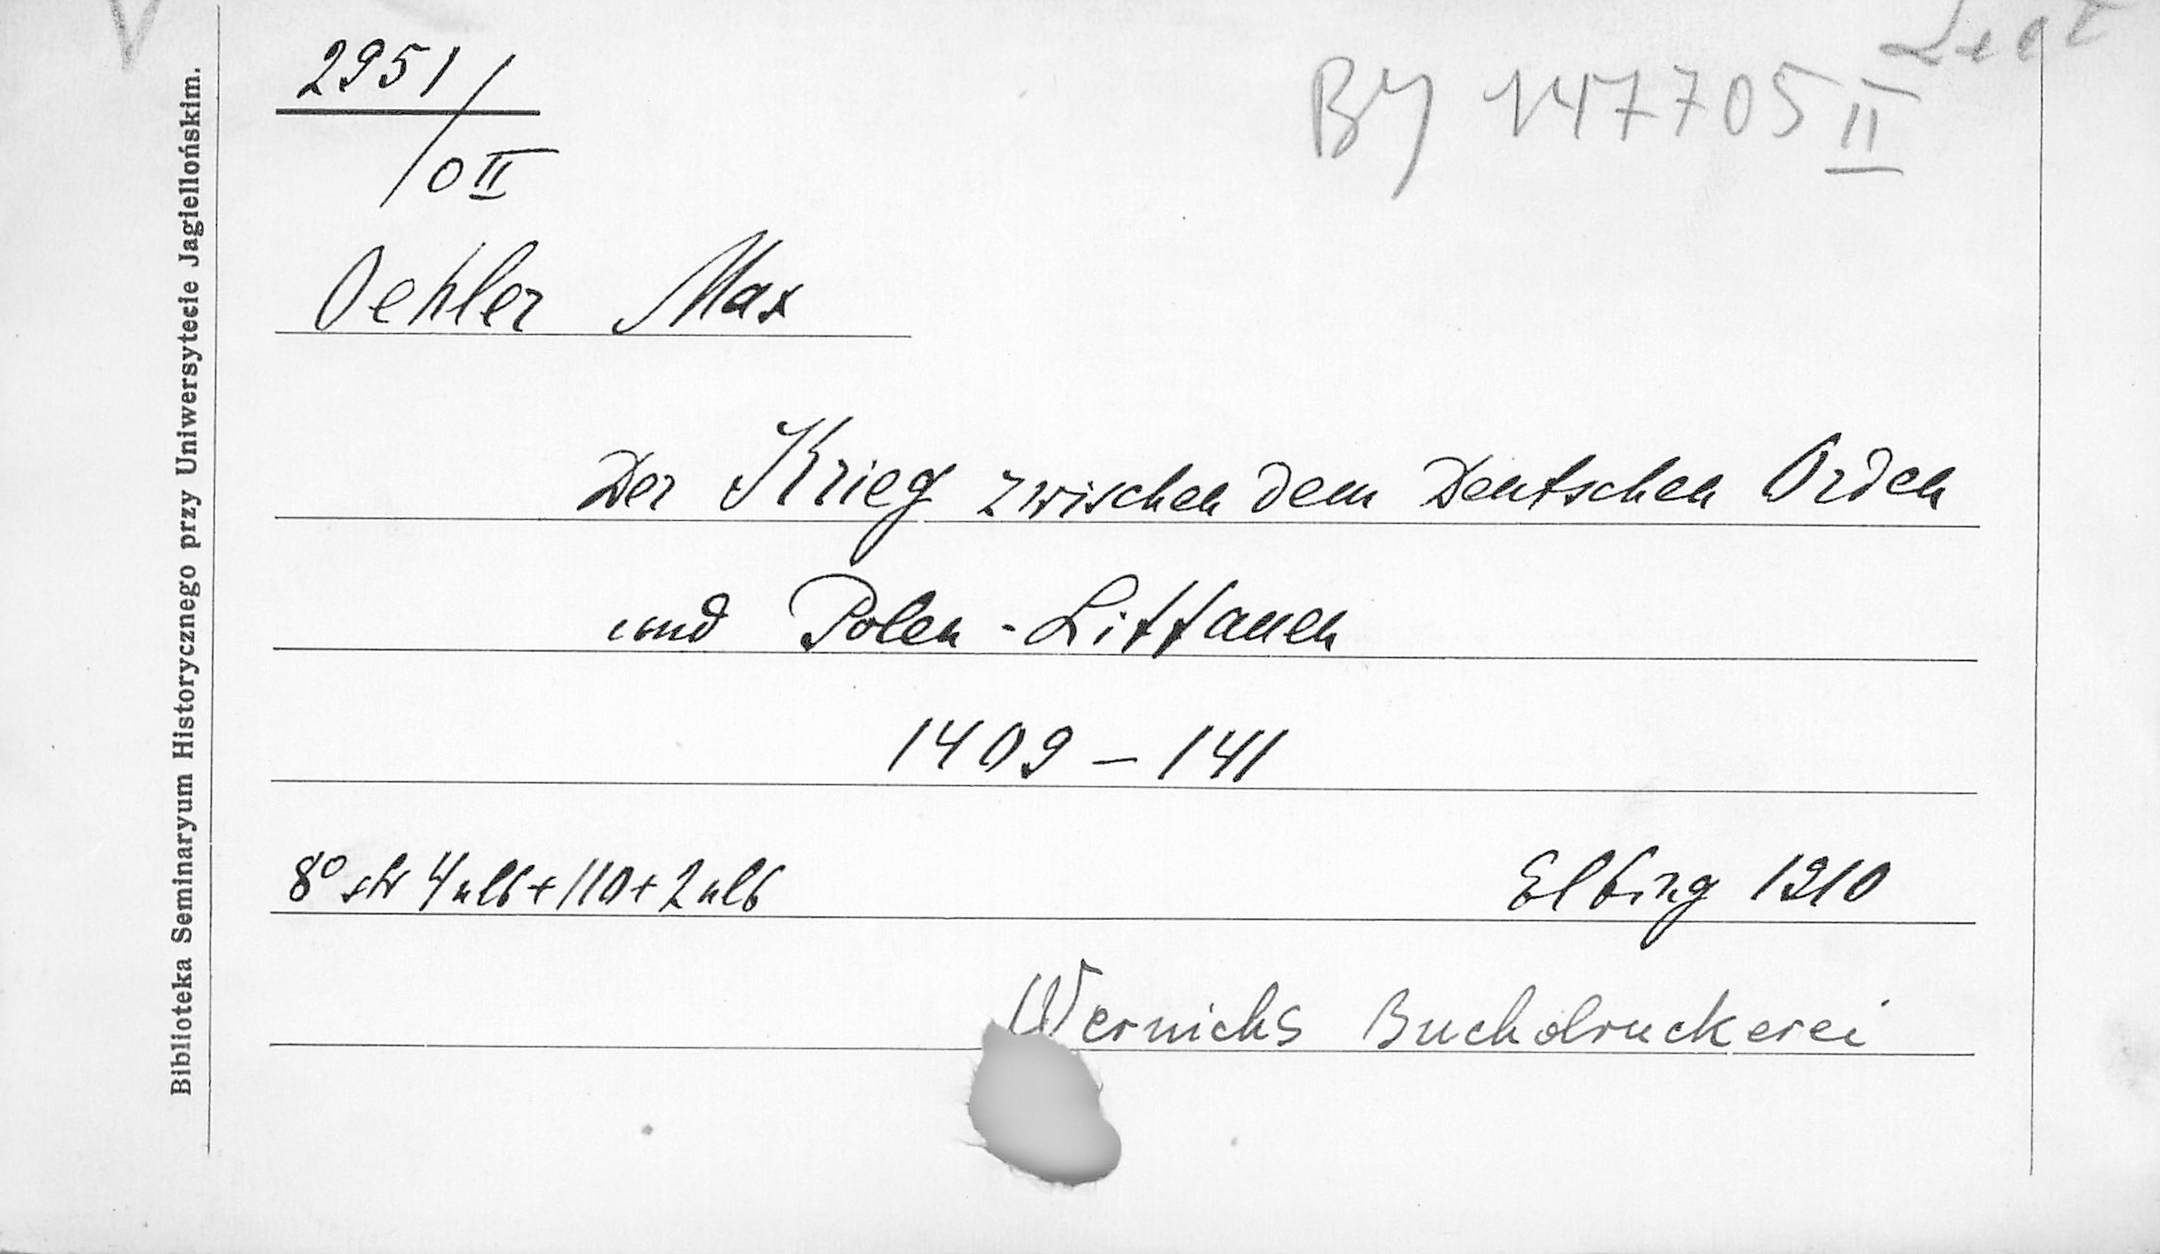 2951/
O II
BJ 147705 II
Oehler Max
Der Krieg zwischen dem Deutschen Orden
und Polen - Littauen
1409 – 141
8° str 4 nlb + 110 + 2 nlb
Elbing 1910
Wernichs Buchdruckerei
Biblioteka Seminaryum Historycznego przy Uniwersytecie Jagiellońskim.